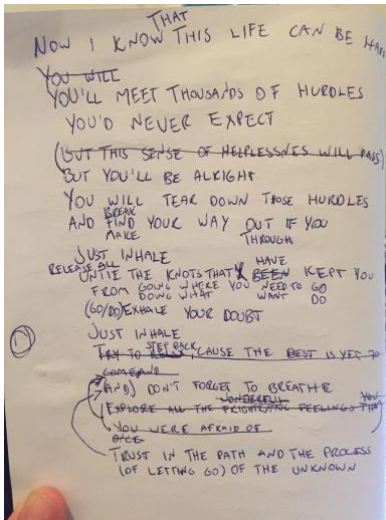 THAT
NOW I KNOW THIS LIFE CAN BE
YOU WILL
YOU'LL MEET THOUSANDS OF HURDLES
YOU'D NEVER EXPECT
(BUT THIS SENSE OF HELPLESSNES WILL PASS)
BUT YOU'LL BE ALRIGHT
YOU WILL TEAR DOWN THOSE HURDLES
BREAK
AND FIND YOUR WAY OUT IF YOU
MAKE THROUGH
JUST INHALE HAVE
RELEASE ALL
UNTIE THE KNOTS THAT BEEN KEPT YOU
FROM GOING WHERE YOU NEED TO GO
DOING WHAT WANT DO
(GO/DO) EXHALE YOUR DOUBT
JUST INHALE
1
STEP BACK
TRY TO RELAX, CAUSE THE BEST IS YET TO
COME AND
(AND) DON'T FORGET TO BREATHE
WONDERFUL YOU
EXPLORE ALL THE FRIGHTENING FEELINGS THAT
YOU WERE AFRAID OF
ONCE
TRUST IN THE PATH AND THE PROCESS
(OF LETTING GO) OF THE UNKNOWN